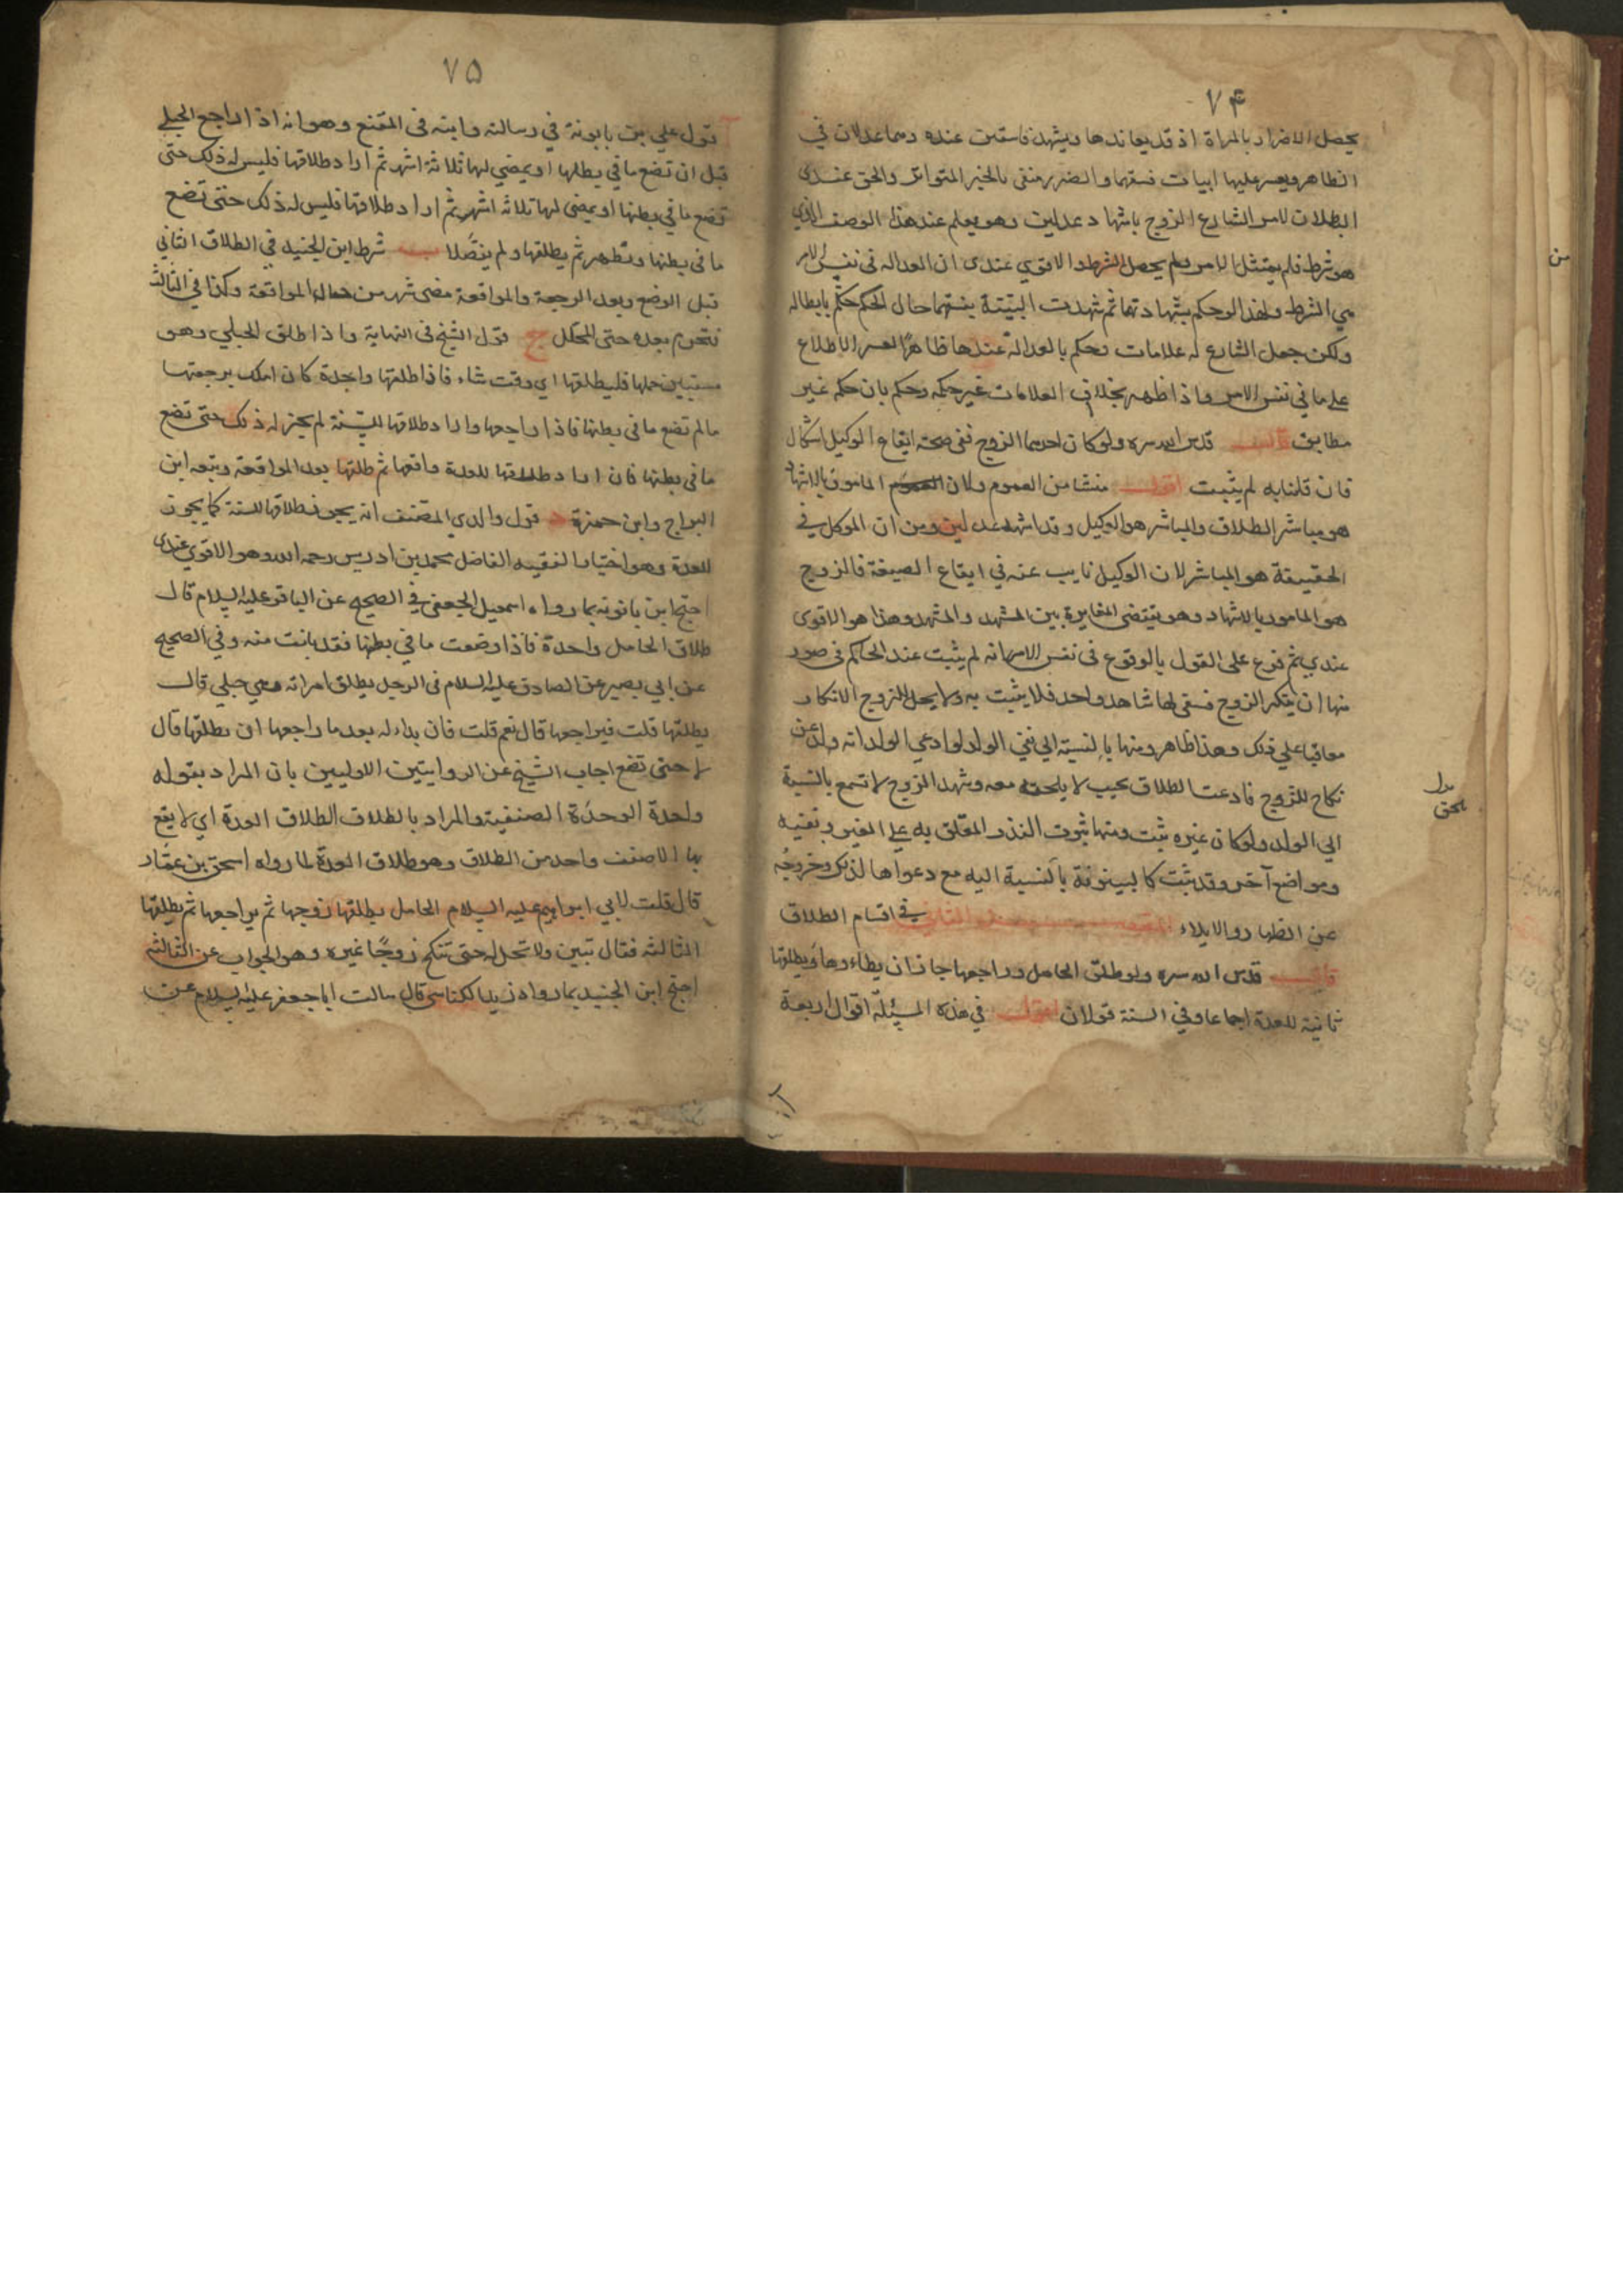 ۷۴
يحصل الاضرار بالمراة اذ قد يعاندها ويشهد فاسقين عنده وهما عدلان في
الظاهر ويعسر عليها اثبات فسقهما والضرر منفى بالخبر المتواتر والحق عندى
البطلان لامر الشارع الزوج باشهاد عدلين وهو يعلم عند هذا الوصف الذي
هو شرط فلم يمتثل الامر ولم يحصل الشرط والاقوي عندى ان العدالة فى نفس الامر
هي الشرط ولهذا لو حكم بشهادتهما ثم شهدت البينة بفسقهما حال الحكم حكم بابطاله
ولكن جعل الشارع له علامات وحكم بالعدالة عندها ظاهرًا لعسر الاطلاع
على ما في نفس الامر واذا ظهر بخلاف العلامات غير حكمه وحكم بان حكمه غير
مطابق قال قدس الله سره ولو كان احدهما الزوج ففى صحة ايقاع الوكيل اشكال
فان قلنا به لم يثبت اقول منشا من العموم ولان المامور بالاشهاد
هو مباشر الطلاق والمباشر هو الوكيل وقد اشهد عدلين ومن ان الموكل في
الحقيقة هو المباشر لان الوكيل نايب عنه في ايقاع الصيغة فالزوج
هو المامور بالاشهاد وهو يقتضى المغايرة بين المشهد والمشهد وهذا هو الاقوى
عندي ثم فرع على القول بالوقوع فى نفس الامر انه لم يثبت عند الحاكم فى صور
منها ان ينكر الزوج فبقى لها شاهد واحد فلا يثبت به ولا يحل للزوج الانكار
معاقبا علي ذلك وهذا ظاهر ومنها بالنسبة الي نفي الولد لو ادعي الولد انه ولد عن
نكاح للزوج فادعت الطلاق بحيث لا يلحقه معه وشهد الزوج لا تسمع بالنسبة
الي الولد ولو كان غيره ثبت ومنها ثبوت النذر المعلق به علي الغير ونفيه
ومواضع آخر وقد يثبت كالبينونة بالنسبة اليه مع دعواها لذلك وخروجه
عن الظهار والايلاء المقصد الثاني في اقسام الطلاق
قال قدس الله سره ولو طلق الحامل وراجعها جاز ان يطاءها ويطلقها
ثانية للعدة اجماعا وفي السنة قولان اقول في هذه المسئلة اقوال اربعة
يلحق
من
۷۵
قول علي بن بابونة في رسالته وابنه فى المقنع وهو انه اذا راجع الحبلي
قبل ان تضع ما في بطنها او يمضي لها ثلاثة اشهر ثم اراد طلاقها فليس له ذلك حتى
تضع ما في بطنها او يمضى لها ثلاثه اشهر ثم اراد طلاقها فليس له ذلك حتى تضع
ما فى بطنها وتطهر ثم يطلقها ولم يفصلا ب شرط ابن الجنيد في الطلاق الثاني
قبل الوضع وبعد الرجعة والمواقعة مضى شهر من حال المواقعة وكذا في الثالث
فتحرم بعده حتى المحلل ج قول الشيخ فى النهاية واذا طلق الحبلي وهو
مستبين حملها فليطلقها اي وقت شاء فاذا طلقها واحدة كان املك برجعتها
ما لم تضع ما فى بطنها فاذا راجعها واراد طلاقها للسنة لم يجز له ذلك حتى تضع
ما فى بطنها فان اراد طلاقها للعدة واقعها ثم طلقها بعد المواقعة وتبعه ابن
البراج وابن حمزة د قول والدي المصنف انه يجوز طلاقها للسنة كما يجوز
للعدة وهو اختيار الفقيه الفاضل محمد بن ادريس رحمه الله وهو الاقوي عندى
احتج ابن بابونه بما رواه اسمعيل الجعفى في الصحيح عن الباقر عليه السلام قال
طلاق الحامل واحدة فاذا وضعت ما في بطنها فقد بانت منه وفي الصحيح
عن ابي بصير عن الصادق عليه السلام فى الرجل يطلق امراته وهي حبلي قال
يطلقها قلت فيراجعها قال نعم قلت فان بداء له بعد ما راجعها ان يطلقها قال
لا حتى تضع اجاب الشيخ عن الروايتين الاوليين بان المراد بقوله
واحدة الوحدة الصنفية والمراد بالطلاق الطلاق العدة اي لا يقع
بها الا صنف واحد من الطلاق وهو طلاق العدة لما رواه اسحق بن عمار
قال قلت لابي ابراهيم عليه السلام الحامل يطلقها زوجها ثم يراجعها ثم يطلقها
الثالثه فقال تبين ولا تحل له حتى تنكح زوجًا غيره وهو الجواب عن الثالثه
احتج ابن الجنيد بما رواه زيد الكناسى قال سالت ابا جعفر عليه السلام عن